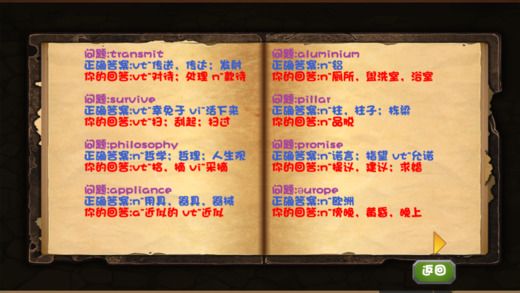 问题:transmit
正确答案:vt~传送、传达；发射
你的回答:vt~对待；处理 n~款待
问题:survive
正确答案:vt~幸免于 vi~活下来
你的回答:vt~扫；刮起；扫过
问题:philosophy
正确答案:n~哲学；哲理；人生观
你的回答:vt~掐、摘 vi~采摘
问题:appliance
正确答案:n~用具、器具、器械
你的回答:a~近似的 vt~近似
问题:aluminium
正确答案:n~铝
你的回答:n~厕所、盥洗室、浴室
问题:pillar
正确答案:n~柱、柱子；栋梁
你的回答:n~品脱
问题:promise
正确答案:n~诺言；指望 vt~允诺
你的回答:n~提议、建议；求婚
问题:europe
正确答案:n~欧洲
你的回答:n~傍晚、黄昏、晚上
返回